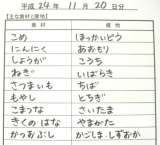 平成 24年 11月 20日分
【主な食材と産地】
食材 産地
こめ ほっかいどう
にんにく あおもり
しょうが こうち
ねぎ いばらき
さつまいも ちば
もやし とちぎ
こまつな さいたま
きくのはな やまがた
かつおぶし かごしま.しずおか